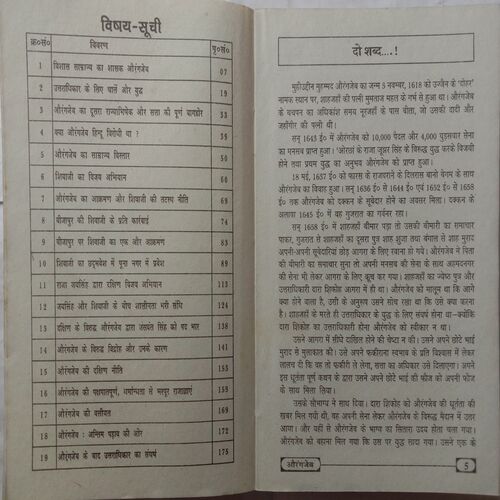 विषय-सूची
क्र०सं० विवरण पृ०सं०
1 विशाल साम्राज्य का शासक औरंगजेब 07
2 उत्तराधिकार के लिए चालें और युद्ध 19
3 औरंगजेब का दूसरा राज्याभिषेक और सत्ता की पूर्ण बागडोर 33
4 क्या औरंगजेब हिन्दू विरोधी था ? 35
5 औरंगजेब का साम्राज्य विस्तार 50
6 शिवाजी का विजय अभियान 60
7 औरंगजेब का आक्रमण और शिवाजी की तटस्थ नीति 69
8 बीजापुर की शिवाजी के प्रति कार्रवाई 74
9 बीजापुर पर शिवाजी का एक और आक्रमण 83
10 शिवाजी का छद्मवेश में पूना नगर में प्रवेश 89
11 राजा जयसिंह द्वारा दक्षिण विजय अभियान 113
12 जयसिंह और शिवाजी के बीच शालीनता भरी संधि 124
13 दक्षिण के विरुद्ध औरंगजेब द्वारा जसवंत सिंह को पद भार 138
14 औरंगजेब के विरुद्ध विद्रोह और उनके कारण 141
15 औरंगजेब की दक्षिण नीति 153
16 औरंगजेब की पक्षपातपूर्ण, धर्मान्धता से भरपूर राजाज्ञाएं 159
17 औरंगजेब की वसीयत 169
18 औरंगजेब : अन्तिम पड़ाव की ओर 172
19 औरंगजेब के बाद उत्तराधिकार का संघर्ष 175
दो शब्द....!
मुहीउद्दीन मुहम्मद औरंगजेब का जन्म 3 नवम्बर, 1618 को उज्जैन के 'दोहर'
नामक स्थान पर, शाहजहाँ की पत्नी मुमताज महल के गर्भ से हुआ था। औरंगजेब
के बचपन का अधिकांश समय नूरजहाँ के पास बीता, जो उसकी दादी और
जहाँगीर की पत्नी थी।
सन् 1643 ई० में औरंगजेब को 10,000 पैदल और 4,000 घुड़सवार सेना
का मनसब प्राप्त हुआ। 'ओरछा के राजा जूझर सिंह के विरुद्ध युद्ध करके विजयी
होने तथा प्रथम युद्ध का अनुभव औरंगजेब को प्राप्त हुआ।
18 मई, 1637 ई० को फारस के राजघराने के दिलरास बानो बेगम के साथ
औरंगजेब का विवाह हुआ। सन् 1636 ई० से 1644 ई० एवं 1652 ई० से 1658
ई० तक औरंगजेब को दक्कन के सूबेदार होने का अवसर मिला। दक्कन के
अलावा 1645 ई० में वह गुजरात का गवर्नर रहा।
सन् 1658 ई० में शाहजहाँ बीमार पड़ा तो उसकी बीमारी का समाचार
पाकर, गुजरात से शाहजहाँ का दूसरा पुत्र शाह शुजा तथा बंगाल से शाह मुराद
अपनी-अपनी सूबेदारियां छोड़ आगरा के लिए रवाना हो गये। औरंगजेब ने पिता
की बीमारी का समाचार सुना तो अपनी मनसब की सेना के साथ अहमदनगर
की सेना भी लेकर आगरा के लिए कूच कर गया। शाहजहाँ का ज्येष्ठ पुत्र और
उत्तराधिकारी दारा शिकोह आगरा में ही था। औरंगजेब को मालूम था कि आगे
क्या होने वाला है, उसी के अनुरूप उसने सोच रखा था कि उसे क्या करना
है। शाहजहाँ के मरते ही उत्तराधिकार के युद्ध के लिए संघर्ष होना था—क्योंकि
दारा शिकोह का उत्तराधिकारी होना औरंगजेब को स्वीकार न था।
उसने आगरा में सीधे दाखिल होने की चेष्टा न की। उसने अपने छोटे भाई
मुराद से मुलाकात की। उसे अपने फकीराना स्वभाव के प्रति विश्वास में लेकर
लालच दी कि वह तो फकीरी ले लेगा, सत्ता का अधिकार उसे दिलाएगा। अपने
इस धूर्तता पूर्ण कथन के द्वारा उसने अपने छोटे भाई की फौज को अपनी फौज
के साथ मिला लिया।
उसके सौभाग्य ने साथ दिया। दारा शिकोह को औरंगजेब की धूर्तता की
खबर मिल गयी थी, वह अपनी सेना लेकर औरंगजेब के विरुद्ध मैदान में उतर
आया। और यहीं से औरंगजेब के भाग्य का सितारा उदय होता चला गया।
औरंगजेब को बहाना मिल गया कि उस पर युद्ध लादा गया। उसने एक के
औरंगजेब 5